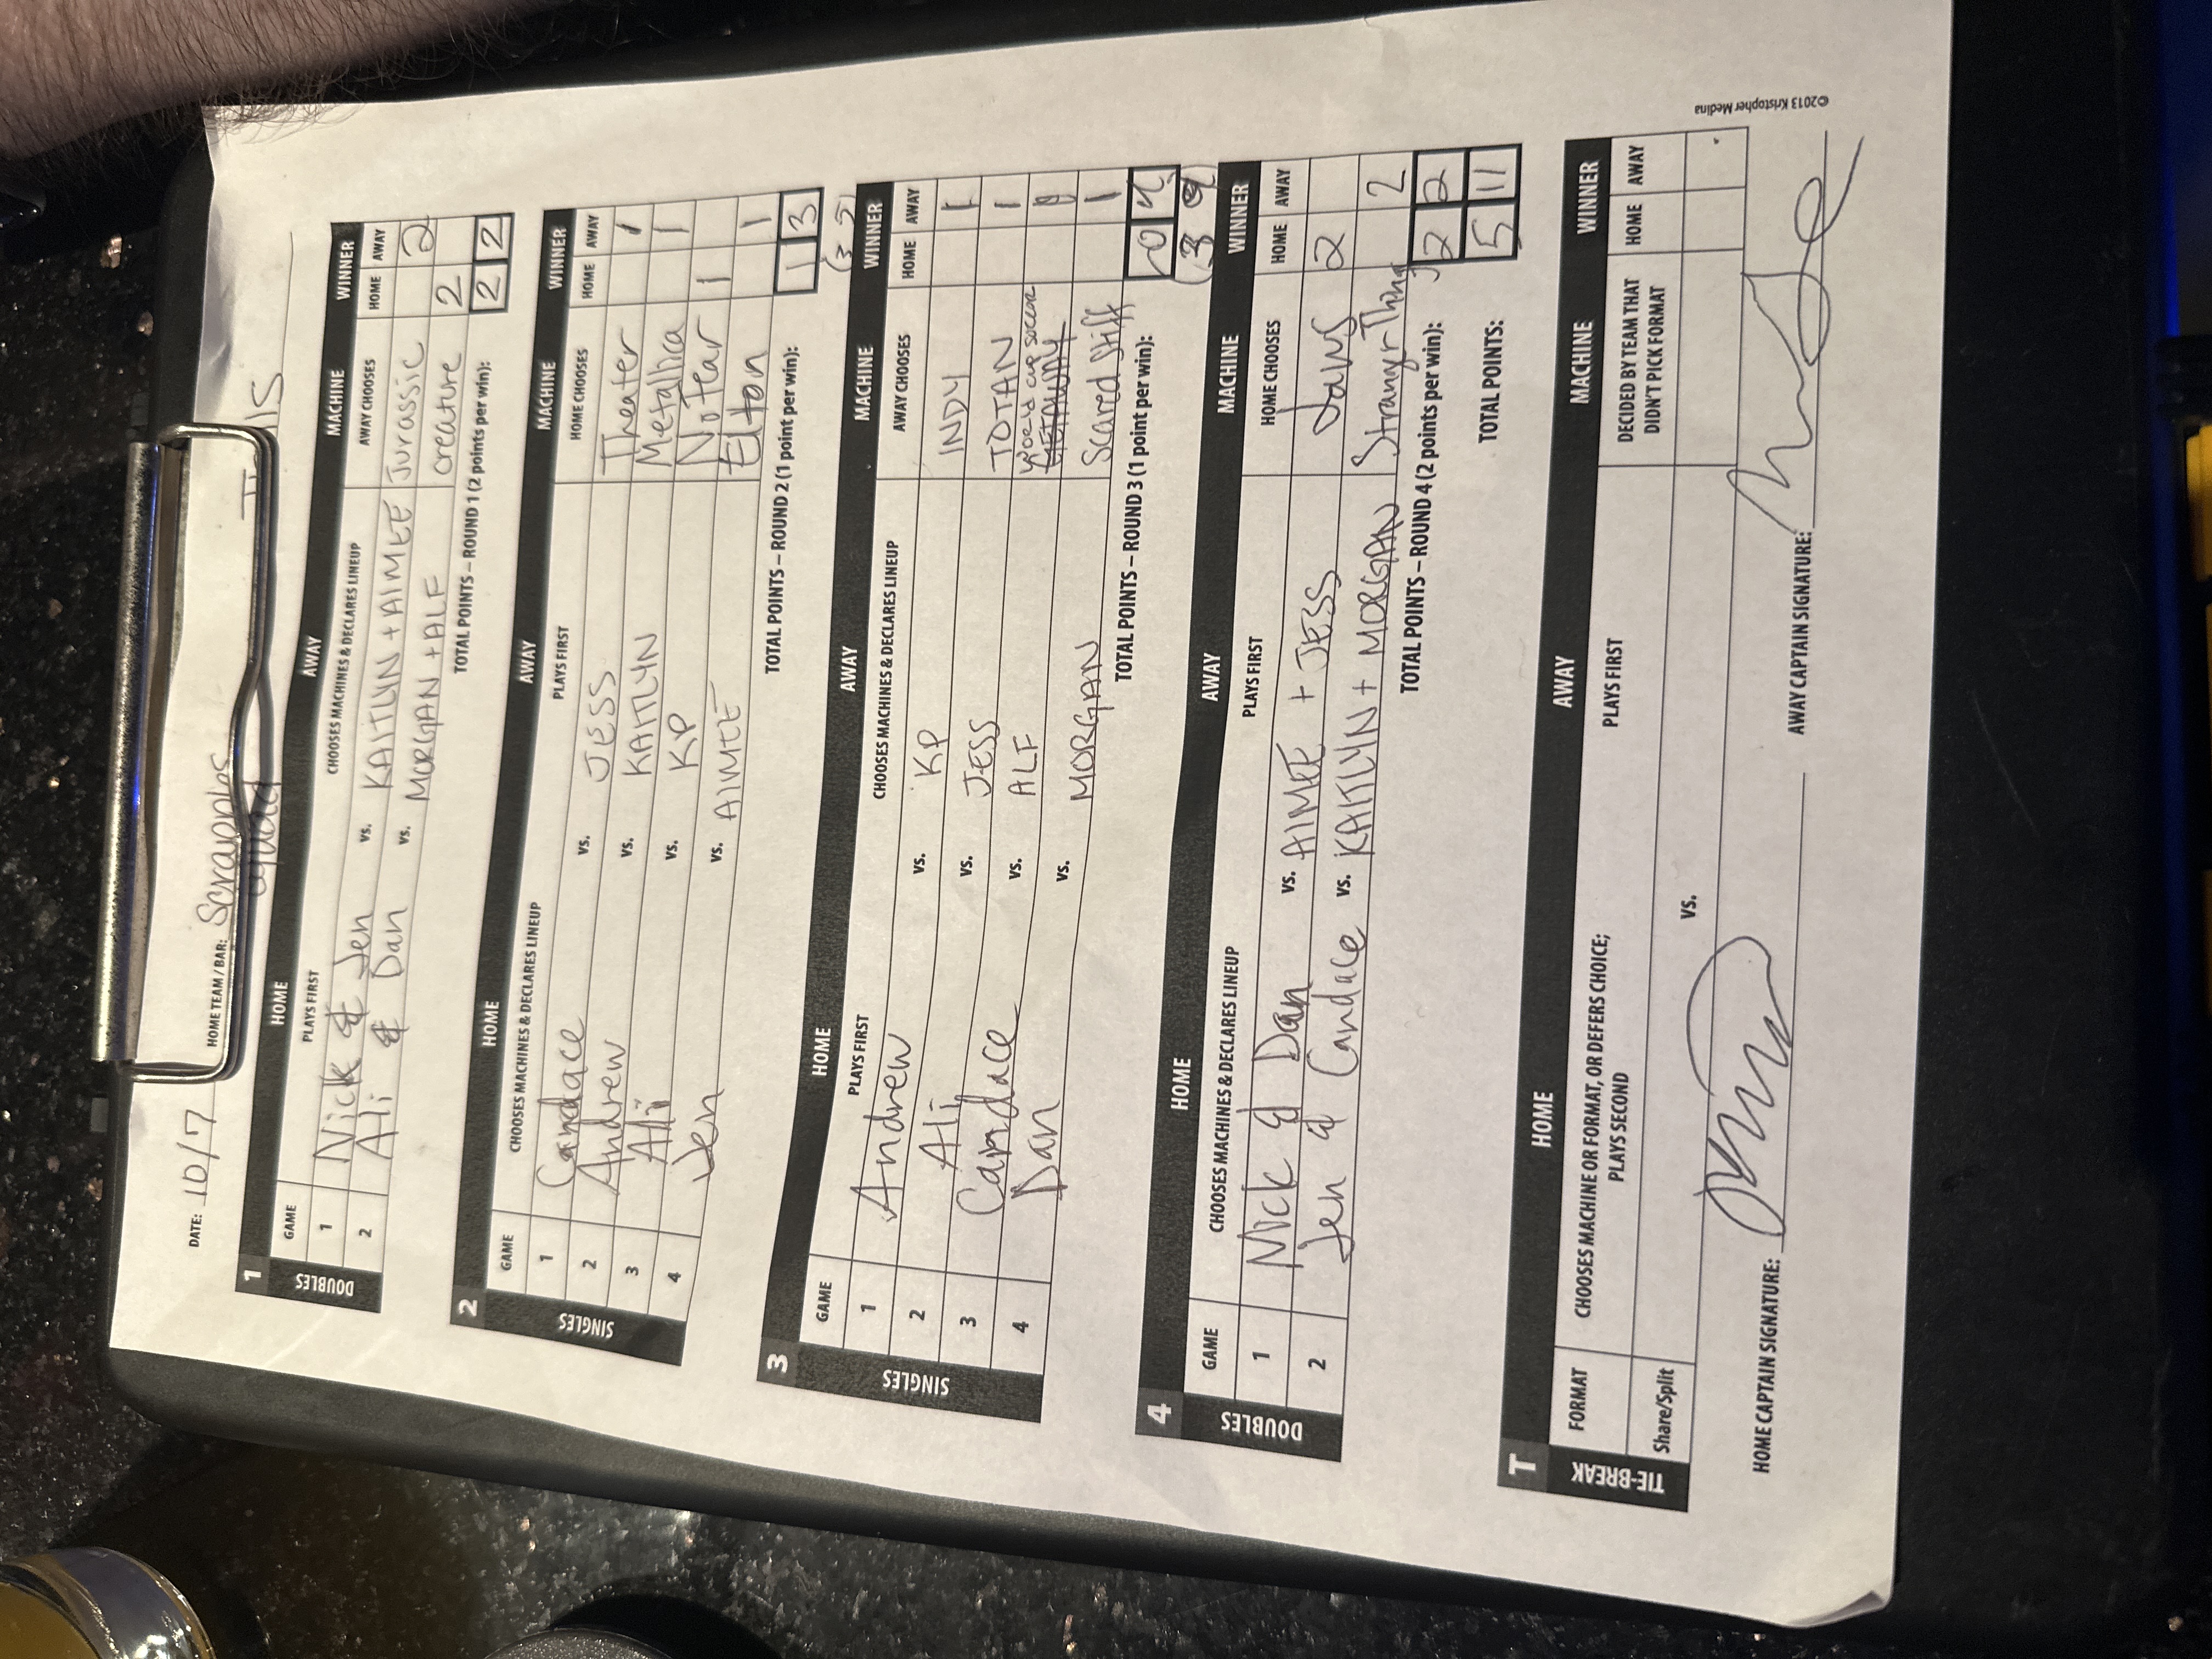 DATE: 10/7 HOME TEAM / BAR: Scrapples
squad
1 HOME AWAY MACHINE WINNER
GAME PLAYS FIRST CHOOSES MACHINES & DECLARES LINEUP AWAY CHOOSES HOME AWAY
DOUBLES
1 Nick & Jen vs. KAITLYN + AIMEE Jurassic 2
2 Ali & Dan vs. MORGAN + ALF creature 2
TOTAL POINTS – ROUND 1 (2 points per win): 2 2
2 HOME AWAY MACHINE WINNER
GAME CHOOSES MACHINES & DECLARES LINEUP PLAYS FIRST HOME CHOOSES HOME AWAY
SINGLES
1 Candace vs. JESS Theater 1
2 Andrew vs. KAITLYN Metallica 1
3 Ali vs. KP No Fear 1
4 Jen vs. AIMEE Elton 1
TOTAL POINTS – ROUND 2 (1 point per win): 1 3
(3 5)
3 HOME AWAY MACHINE WINNER
GAME PLAYS FIRST CHOOSES MACHINES & DECLARES LINEUP AWAY CHOOSES HOME AWAY
SINGLES
1 Andrew vs. KP INDY 1
2 Ali vs. JESS TOTAN 1
3 Candace vs. ALF World cup soccer 1
4 Dan vs. MORGAN Scared Stiff 1
TOTAL POINTS – ROUND 3 (1 point per win): 0 4
(3 9)
4 HOME AWAY MACHINE WINNER
GAME CHOOSES MACHINES & DECLARES LINEUP PLAYS FIRST HOME CHOOSES HOME AWAY
DOUBLES
1 Nick & Dan vs. AIMEE + JESS Jaws 2
2 Jen & Candace vs. KAITLYN + MORGAN Stranger Things 2
TOTAL POINTS – ROUND 4 (2 points per win): 2 2
TOTAL POINTS: 5 11
T HOME AWAY MACHINE WINNER
TIE-BREAK
FORMAT CHOOSES MACHINE OR FORMAT, OR DEFERS CHOICE; PLAYS SECOND PLAYS FIRST DECIDED BY TEAM THAT DIDN'T PICK FORMAT HOME AWAY
Share/Split vs.
HOME CAPTAIN SIGNATURE: AWAY CAPTAIN SIGNATURE:
©2013 Kristopher Medina